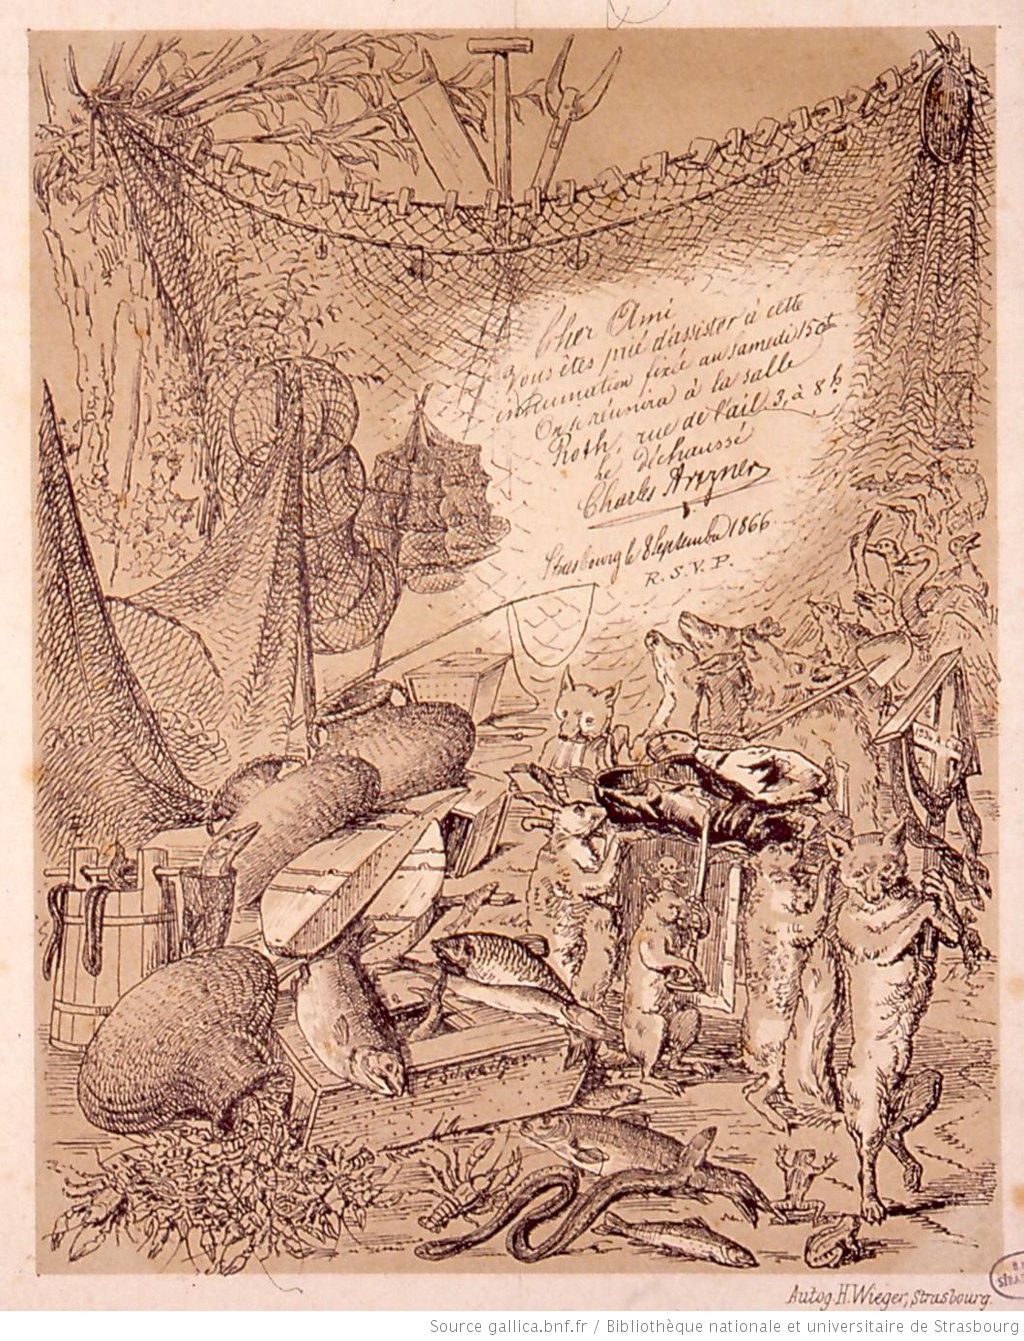 Cher Ami
Vous êtes prié d'assister à cette
inhumation fixée au samedi 15 ct
On se réunira à la salle
Roth, rue de l'ail 3, à 8 h
re de chaussé
Charles
Strasbourg le 8 Septembre 1866.
R. S. V. P.
Autog. H. Wieger, Strasbourg.
Source gallica.bnf.fr / Bibliothèque nationale et universitaire de Strasbourg